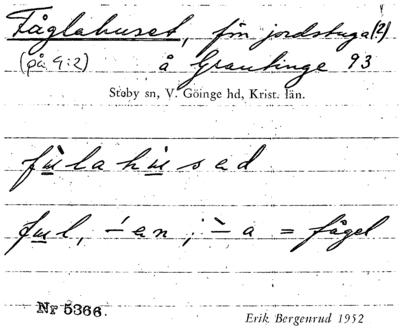 Fåglahuset, fin jordstuga (2)
(på 9:2) å Grantinge 93
Stoby sn, V. Göinge hd, Krist. län.
fùlahùsad
ful, -́en; -̀a = fågel
Nr 5366.
Erik Bergenrud 1952